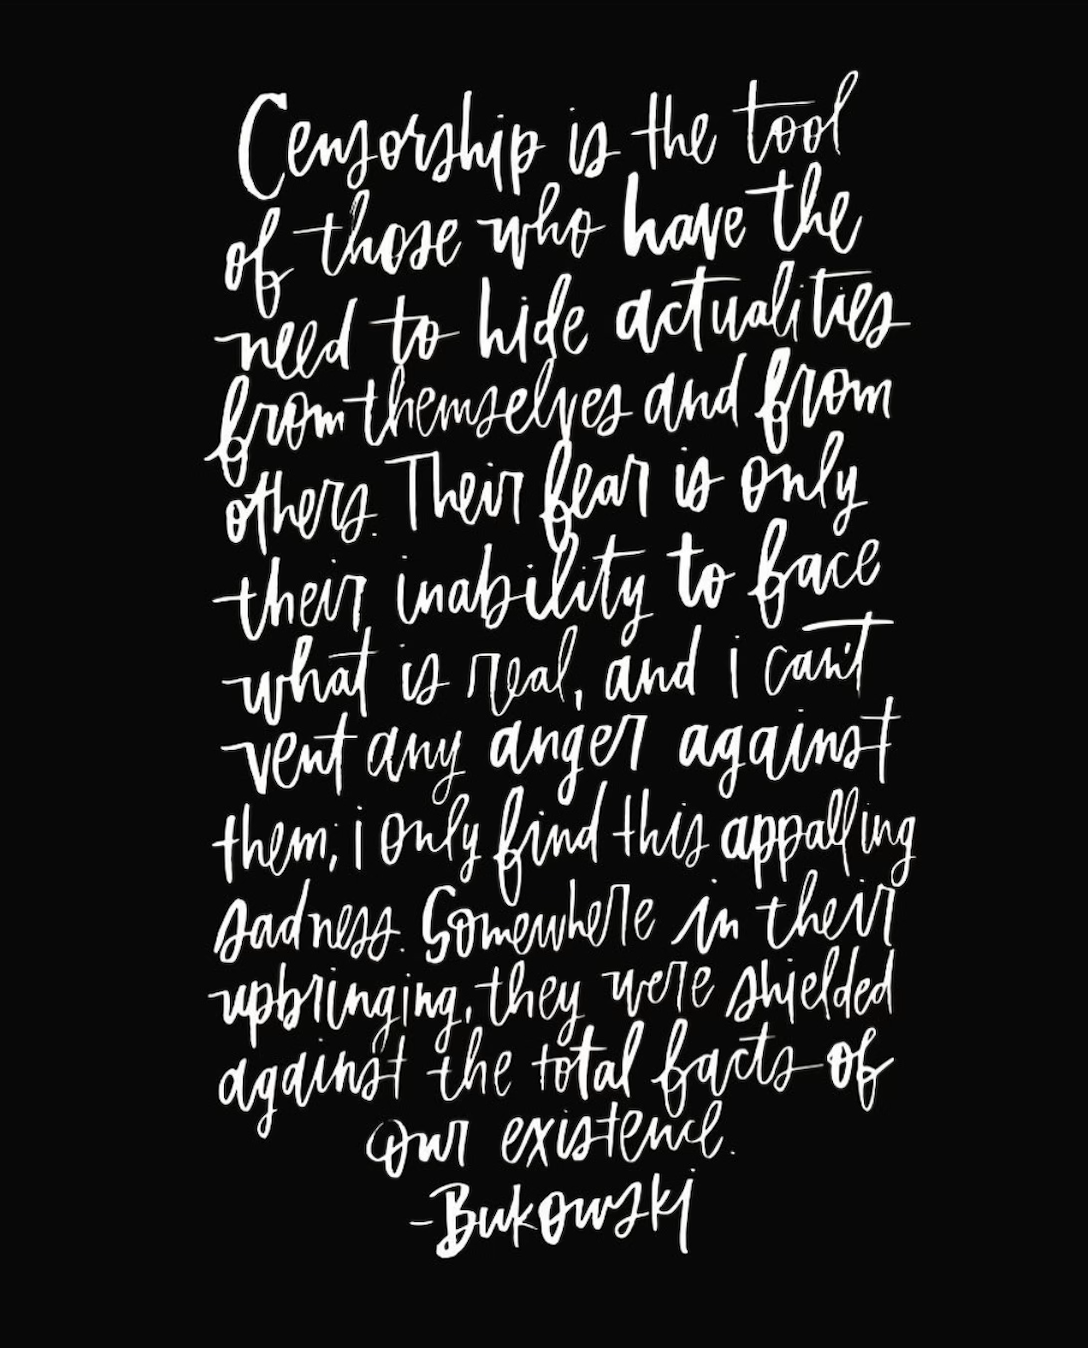 Censorship is the tool
of those who have the
need to hide actualities
from themselves and from
others. Their fear is only
their inability to face
what is real, and i can't
vent any anger against
them; i only find this appalling
sadness. Somewhere in their
upbringing, they were shielded
against the total facts of
our existence.
-Bukowski